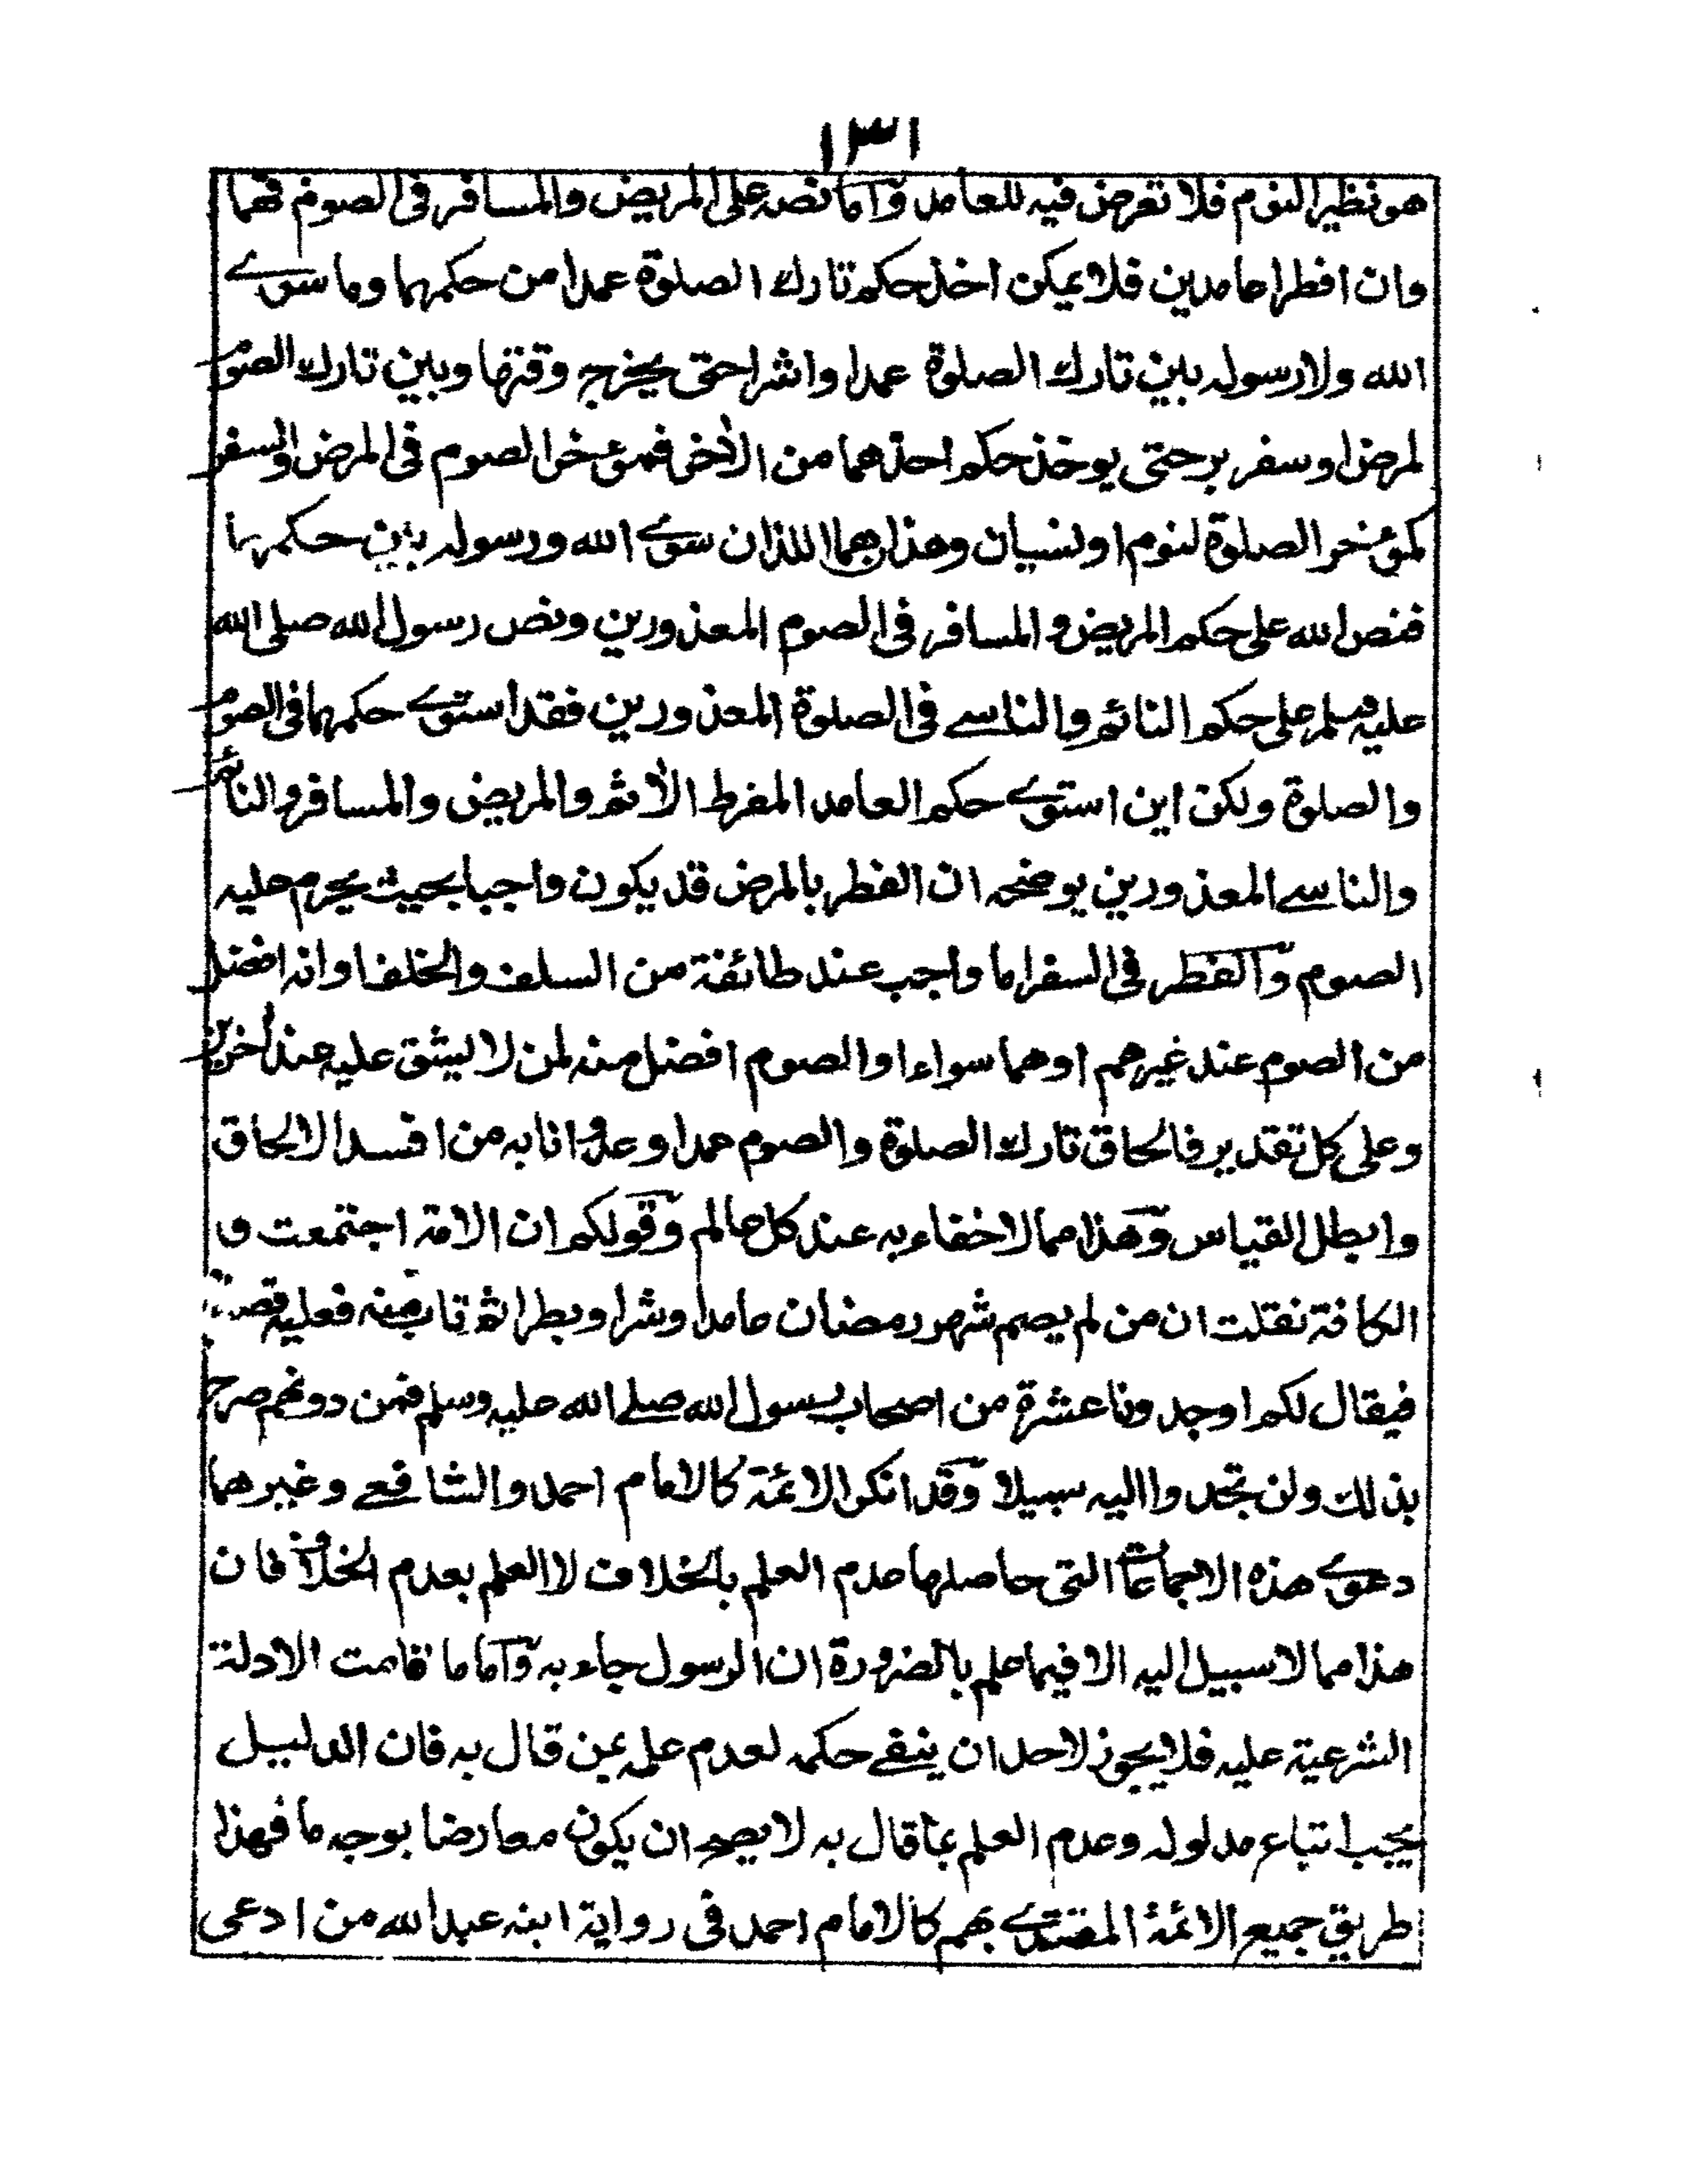 ١٣١
هو نظير النوم فلا تعرض فيه للعامد وأما نصه على المريض والمسافر فى الصوم فهما
وان افطرا عامدين فلا يمكن اخذ حكم تارك الصلوة عمدا من حكمهما وما سوے
الله ولا رسوله بين تارك الصلوة عمدا واشرا حتى يخرج وقتها وبين تارك الصوم
لمرض او سفر برحتى يوخذ حكم احدهما من الأخر فمؤخر الصوم فى المرض والسفر
كمؤخر الصلوة لنوم او نسيان وهذا هما اللذان سوے الله ورسوله بين حكمهما
فنص الله على حكم المريض والمسافر فى الصوم المعذورين ونص رسول الله صلى الله
عليه وسلم على حكم النائم والناسے فى الصلوة المعذورين فقد استوے حكمهما فى الصوم
والصلوة ولكن اين استوے حكم العامد المفرط الأثم والمريض والمسافر والنائم
والناسے المعذورين يوضحه ان الفطر بالمرض قد يكون واجبا بحيث يحرم عليه
الصوم وآلفطر فى السفر اما واجب عند طائفة من السلف والخلف او انه افضل
من الصوم عند غيرهم او هما سواء او الصوم افضل منه لمن لا يشق عليه عند أخرين
وعلى كل تقدير فالحاق تارك الصلوة والصوم عمدا وعدوانا به من افسد الالحاق
وابطل القياس وهذا مما لا خفاء به عند كل عالم وقولكم ان الامة اجتمعت و
الكافة نقلت ان من لم يصم شهر رمضان عامدا وشرا وبطرا ثم تاب منه فعليه قصاء
فيقال لكم اوجدونا عشرة من اصحاب رسول الله صلے الله عليه وسلم فمن دونهم صرح
بذلك ولن تجدوا اليه سبيلا وقد انكر الائمة كالامام احمد والشافعے وغيرهما
دعوے هذه الاجماعات التى حاصلها عدم العلم بالخلاف لا العلم بعدم الخلاف فان
هذا مما لا سبيل اليه الا فيما علم بالضرورة ان الرسول جاء به وآما ما قامت الادلة
الشرعية عليه فلا يجوز لاحد ان ينفے حكمه لعدم علمه بمن قال به فان الدليل
يجب اتباع مدلوله وعدم العلم بما قال به لا يصح ان يكون معارضا بوجه ما فهذا
طريق جميع الائمة المقتدے بهم كالامام احمد فى رواية ابنه عبد الله من ادعى